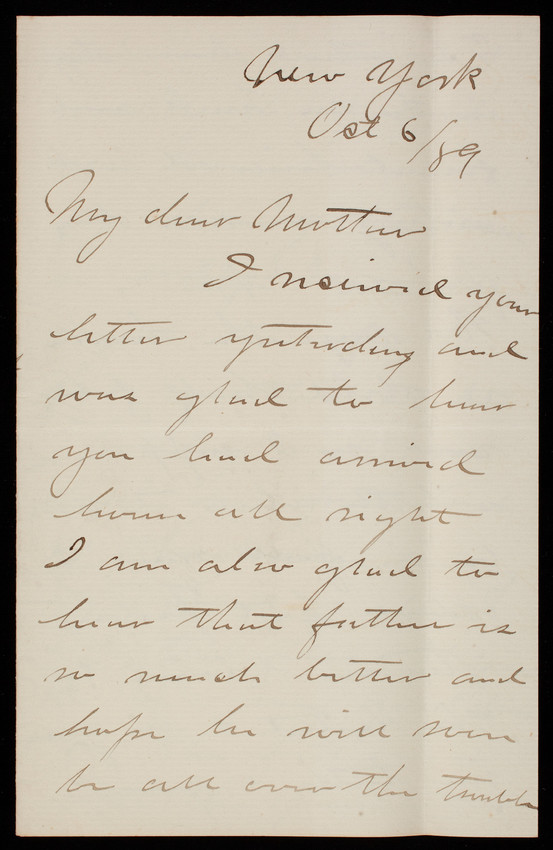 New York
Oct 6/89
My dear Mother
I received your
letter yesterday and
was glad to hear
you had arrived
home all right
I am also glad to
hear that father is
so much better and
hope he will soon
be all over the trouble